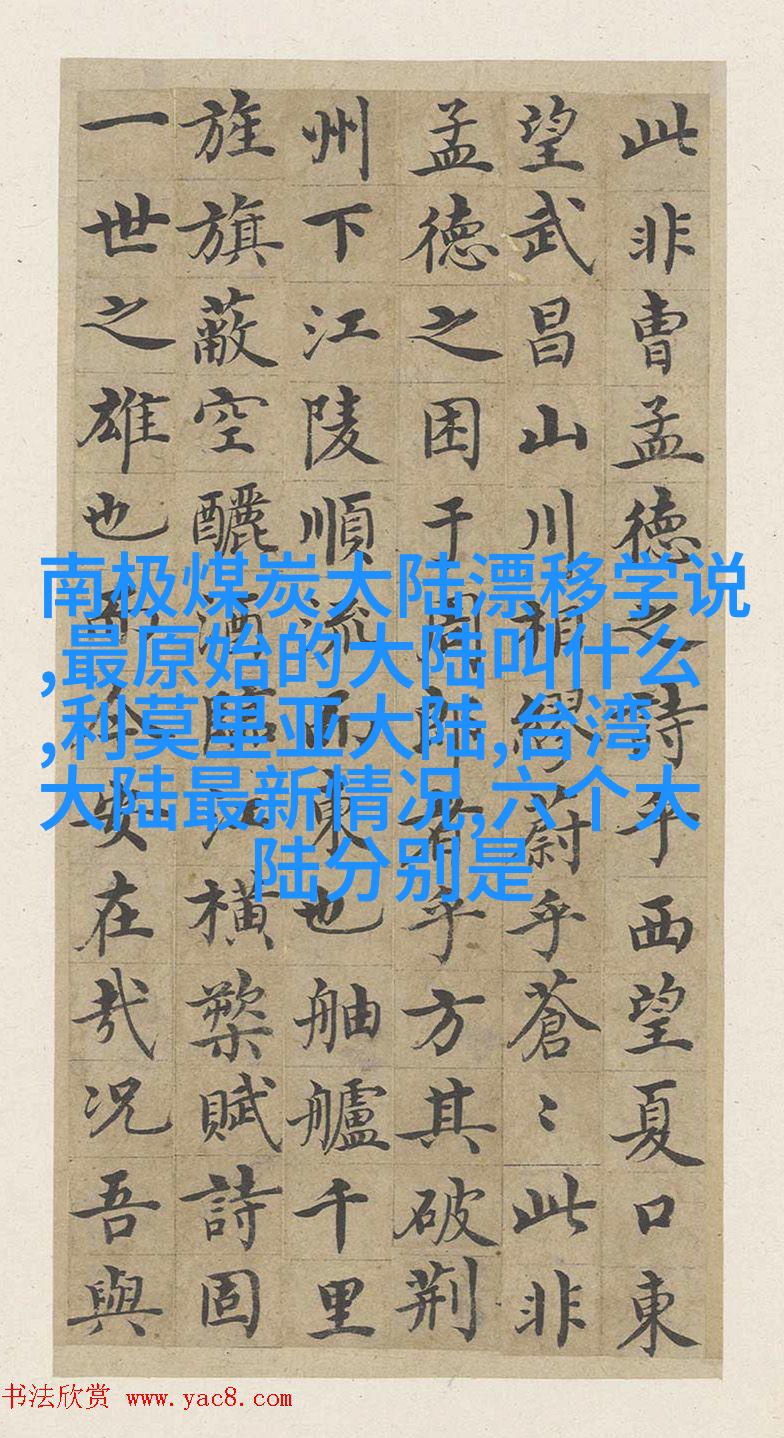 此非曹孟德之詩乎西望夏口東
望武昌山川相繆蔚乎蒼〻此非
孟德之困于周郎者乎方其破荊
州下江陵順流而東也舳艫千里
旌旗蔽空釃酒臨江橫槊賦詩固
一世之雄也而今安在哉况吾與
南极煤炭大陆漂移学说
,最原始的大陆叫什么
,利莫里亚大陆,台湾
大陆最新情况,六个大
陆分别是
书法欣赏 www.yac8.com